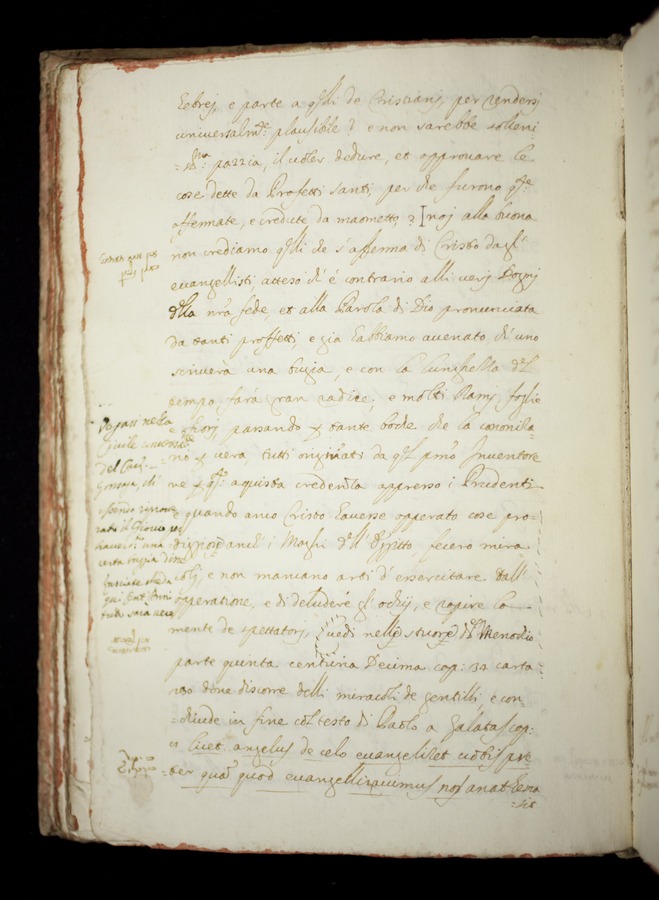 Hebrej, e parte a q.lli de Cristianj, per rendersj
universalm.te plausibile? e non sarebbe solleni
=ss.ma pazzia, il voler dedure, et approuare le
cose dette da Profetti Santi, per che furono q.te
affermate, e credute da maometto? noj alla buona
non crediamo q.lli che s'afferma di Cristo dagl'
euangellisti atteso ch'é contrario alli uerj Dogmj
della nr̃a fede, et alla Parola di Dio pronunciata
da tanti proffetti, e gia habbiamo auenato ch'uno
scriuerà una bugia, e con la lunghella del
tempo farà gran radice, e molti Ramj, foglie
e fiorj, passando p tante boche che la canoniza=
=no p uera, tutti originati da q.l pmo Inuentore
ne p q.to aquista credenza appresso i Prudenti
e quando anco Cristo hauesse opperato cose pro=
=digiose anch'i Maghi dell'Egitto fecero mira=
=colj, e non mancano arti d'essercitare dall'
opperatione, e di deludere gl'ochij, e rapire la
mente de spettatorj, uedi nelle stuore del Menochio
parte quinta centuria Decima cap: 34 carta
doue discorre delli miracoli de gentilli, e con=
=clude in fine col testo di Paolo a Galatas cap:
licet angelus de celo euangelizet uobis pre
ter qua quod euangelizauimus nos anathema
=sit
Va pass nella
Ciuile conuersat.e
del Cau.
Gonzaga, ch'
essendo rimove
rato il Gioco per
hauer una
certa bugia dine
lasciate che da
qui cent'anni
sarà uera